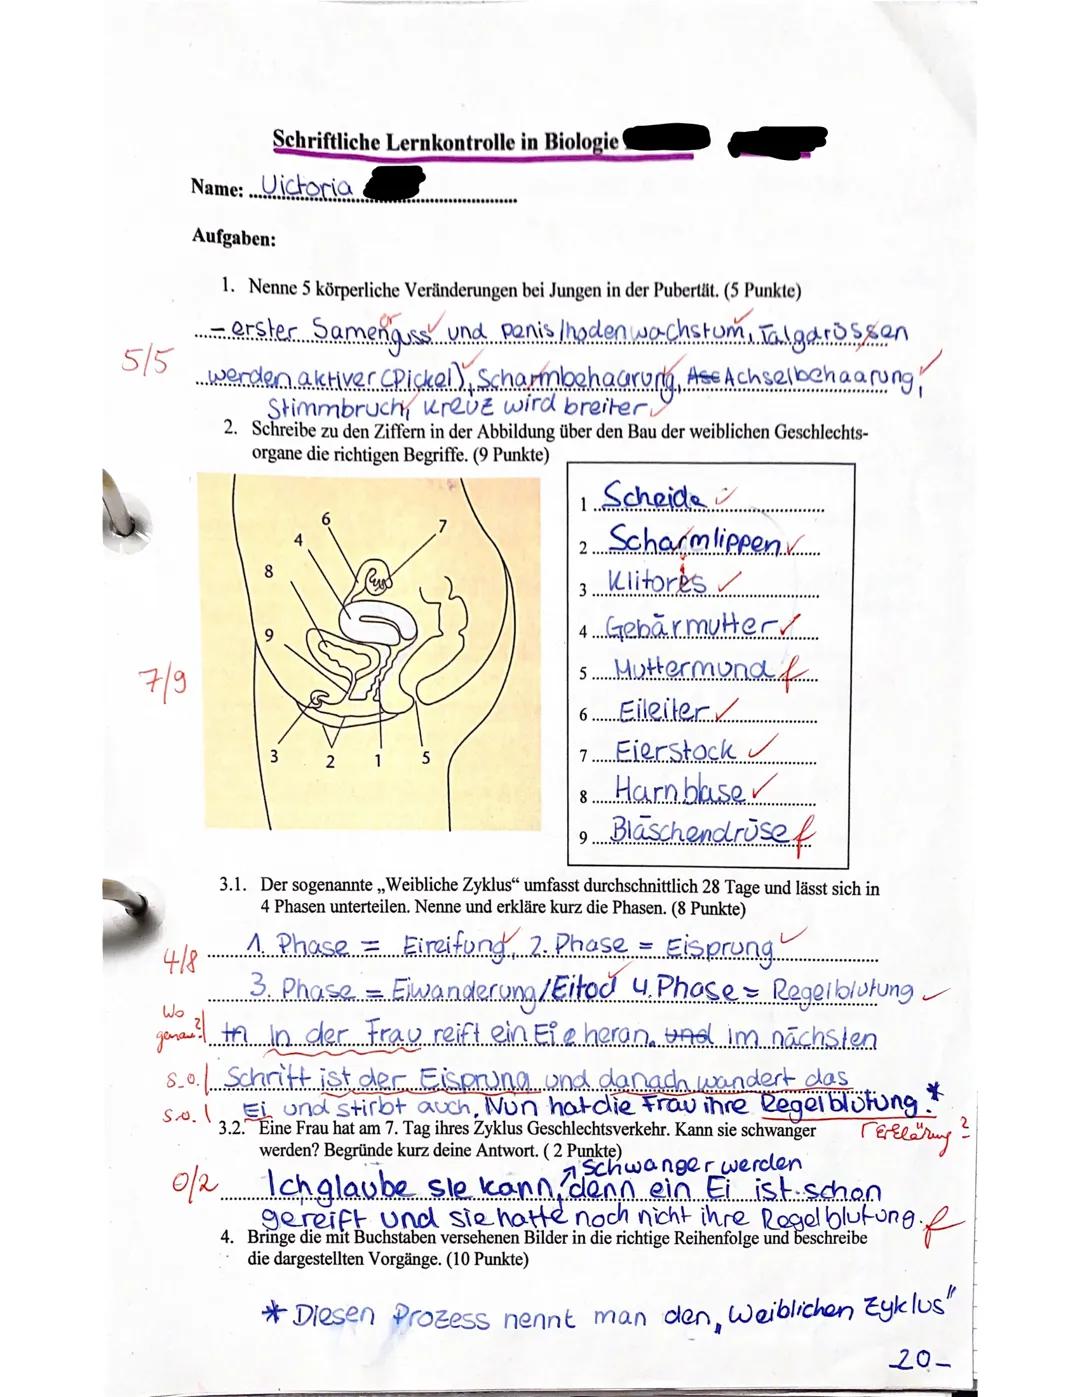 Schriftliche Lernkontrolle in Biologie
Name: Victoria
Aufgaben:
1. Nenne 5 körperliche Veränderungen bei Jungen in der Pubertät. (5 Punkte)
- erster Samenguss und penis/hodenwachstum, Talgdrüssen
5/5
werden aktiver (Pickel), Scharmbehaarung, Achselbehaarung,
Stimmbruch, kreuz wird breiter
2. Schreibe zu den Ziffern in der Abbildung über den Bau der weiblichen Geschlechts-
organe die richtigen Begriffe. (9 Punkte)
7/9
6
4
7
8
9
3
2
1
5
1 Scheide
2 Scharmlippen
3 Klitores
4 Gebärmutter
5 Muttermund f
6 Eileiter
7 Eierstock
8 Harnblase
9 Bläschendrüse f
3.1. Der sogenannte „Weibliche Zyklus“ umfasst durchschnittlich 28 Tage und lässt sich in
4 Phasen unterteilen. Nenne und erkläre kurz die Phasen. (8 Punkte)
4/8
1. Phase = Eireifung, 2. Phase = Eisprung
3. Phase = Eiwanderung/Eitod 4. Phase = Regelblutung
Wo genau?
In der Frau reift ein Ei heran. und im nächsten
s.o. Schritt ist der Eisprung und danach wandert das
s.o. Ei und stirbt auch, Nun hat die Frau ihre Regelblutung. *
Erklärung?
3.2. Eine Frau hat am 7. Tag ihres Zyklus Geschlechtsverkehr. Kann sie schwanger
werden? Begründe kurz deine Antwort. ( 2 Punkte)
schwanger werden
0/2 Ich glaube sie kann, denn ein Ei ist schon
gereift und sie hatte noch nicht ihre Regelblutung. f
4. Bringe die mit Buchstaben versehenen Bilder in die richtige Reihenfolge und beschreibe
die dargestellten Vorgänge. (10 Punkte)
* Diesen Prozess nennt man den „Weiblichen Zyklus"
20-